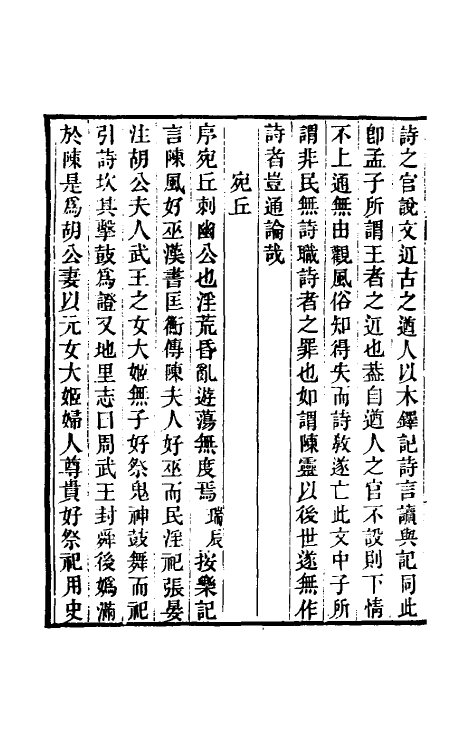 詩之官說文𨒌古之遒人以木鐸記詩言讀與記同此
卽孟子所謂王者之𨒌也葢自遒人之官不設則下情
不上通無由觀風俗知得失而詩敎遂亡此文中子所
謂非民無詩職詩者之罪也如謂陳靈以後世遂無作
詩者豈通論哉
宛丘
序宛丘刺幽公也淫荒昏亂遊蕩無度焉瑞辰按樂記
言陳風好巫漢書匡衡傳陳夫人好巫而民淫祀張晏
注胡公夫人武王之女大姬無子好祭鬼神鼓舞而祀
引詩坎其擊鼓爲證又地里志曰周武王封舜後嬀滿
於陳是爲胡公妻以元女大姬婦人尊貴好祭祀用史